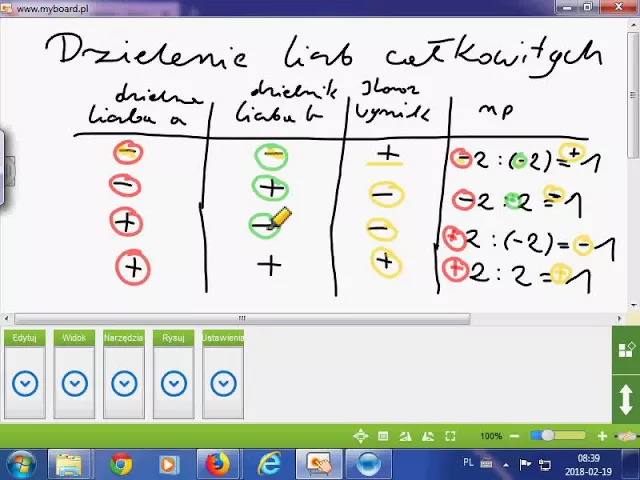 www.myboard.pl
Dzielenie liczb całkowitych
dzielna liczba a
dzielnik liczba b
Iloraz wynik
np
- - + -2 : (-2) = +1
- + - -2 : 2 = -1
+ - - +2 : (-2) = -1
+ + + +2 : 2 = +1
Edytuj Widok Narzędzia Rysuj Ustawienia
100%
PL 08:39
2018-02-19